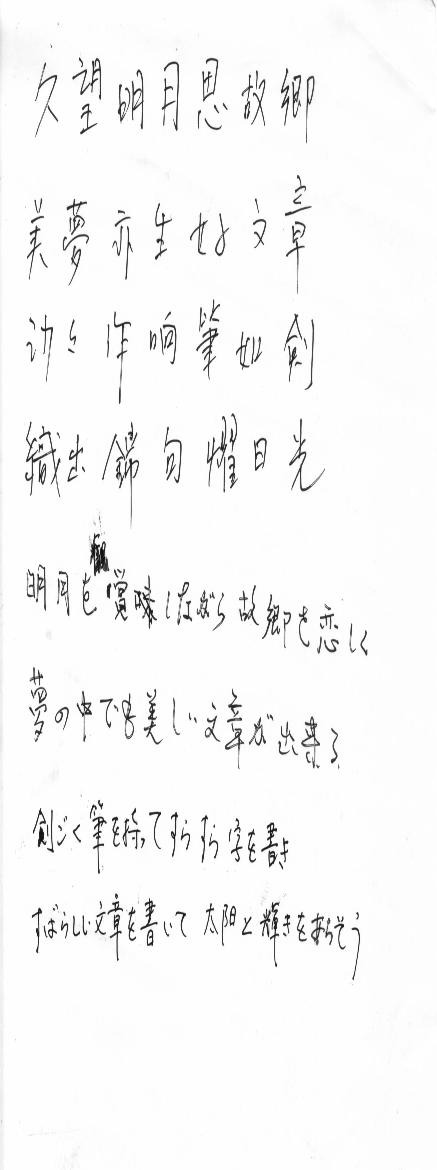 久望明月思故鄉
美夢亦生好文章
沙々作响筆如劍
織出錦句耀日光
明月を賞味しながら故郷を恋しく
夢の中でも美しい文章が出来る
劍ごく筆を持ってすらすら字を書き
すばらしい文章を書いて太陽と輝きをあらそう